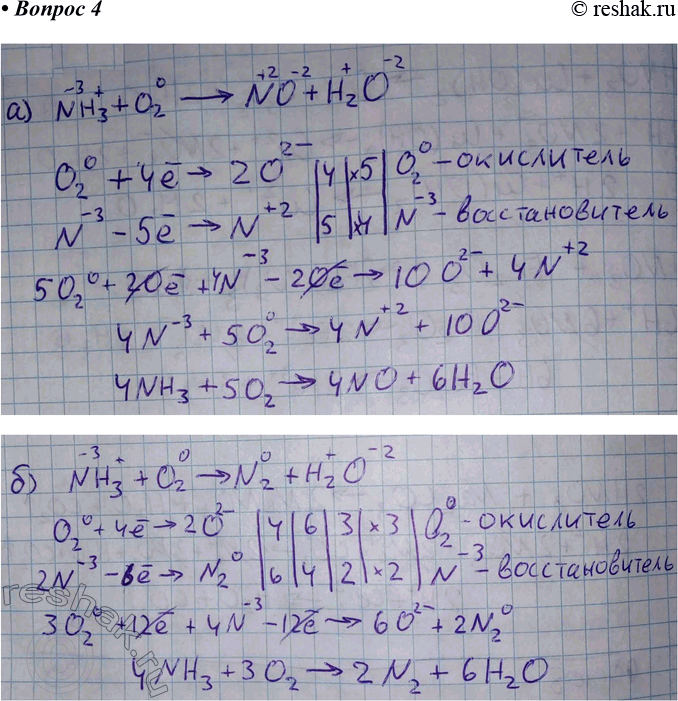 • Вопрос 4
© reshak.ru
а) N⁻³H₃⁺ + O₂⁰ → N⁺²O⁻² + H₂⁺O⁻²
O₂⁰ + 4ē → 2O²⁻ |4|×5| O₂⁰ - окислитель
N⁻³ - 5ē → N⁺² |5|×4| N⁻³ - восстановитель
5O₂⁰ + 20ē + 4N⁻³ - 20ē → 10O²⁻ + 4N⁺²
4N⁻³ + 5O₂⁰ → 4N⁺² + 10O²⁻
4NH₃ + 5O₂ → 4NO + 6H₂O
б) N⁻³H₃⁺ + O₂⁰ → N₂⁰ + H₂⁺O⁻²
O₂⁰ + 4ē → 2O²⁻ |4|6|3|×3| O₂⁰ - окислитель
2N⁻³ - 6ē → N₂⁰ |6|4|2|×2| N⁻³ - восстановитель
3O₂⁰ + 12ē + 4N⁻³ - 12ē → 6O²⁻ + 2N₂⁰
4NH₃ + 3O₂ → 2N₂ + 6H₂O
reshak.ru